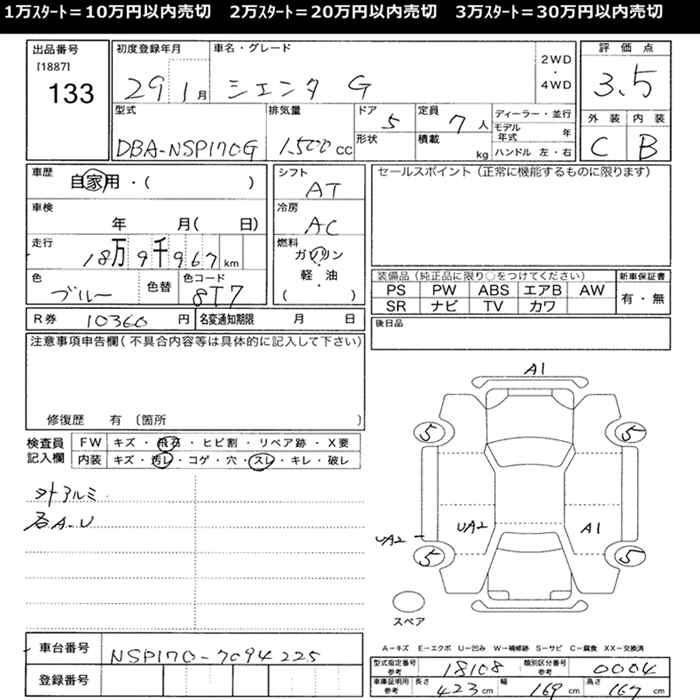 1万スタート＝10万円以内売切　2万スタート＝20万円以内売切　3万スタート＝30万円以内売切
出品番号
[1887]
133
初度登録年月
29 1月
車名・グレード
シエンタ G
2WD
・
4WD
評価点
3.5
型式
DBA-NSP170G
排気量
1,500cc
ドア
5
形状
定員
7人
積載
kg
ディーラー・並行
モデル年式 年
ハンドル 左・右
外装
C
内装
B
車歴
自家用・( )
車検
年 月( 日)
走行
18万9千967km
色
ブルー
色替
色コード
8T7
シフト
AT
冷房
AC
燃料
ガソリン
軽・油
( )
セールスポイント（正常に機能するものに限ります）
装備品（純正品に限り○をつけてください）
PS PW ABS エアB AW
SR ナビ TV カワ
新車保証書
有・無
R券 10360円
名変通知期限 月 日
後日品
注意事項申告欄（不具合内容等は具体的に記入して下さい）
修復歴 有〔箇所 〕
検査員
記入欄
FW キズ・飛石・ヒビ割・リペア跡・X要
内装 キズ・汚レ・コゲ・穴・スレ・キレ・破レ
外アルミ
各A-U
A1
5
5
UA2
UA2
A1
5
5
スペア
A－キズ E－エクボ U－凹み W－補修跡 S－サビ C－腐食 XX－交換済
車台番号
NSP170-7094225
登録番号
型式指定番号
参考
18108
類別区分番号
参考
0004
車庫証明用
参考
長さ
423cm
幅
169cm
高さ
167cm